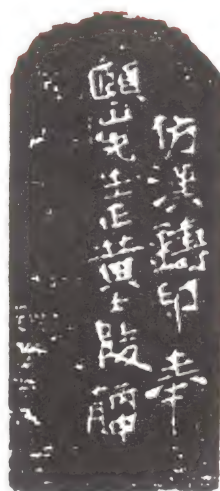 仿漢鑿印奉
頤山先生正黃士陵